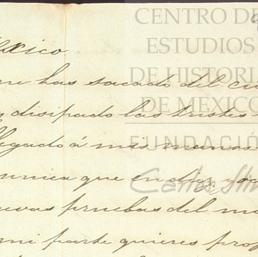 CENTRO DE
ESTUDIOS
DE HISTORIA
DE MEXICO
FUNDACIÓN
Carlos
México
me has sacado del
disipado las tristes
llegado á mis manos
unica que en dos
nuevas pruebas del
mi parte quieres